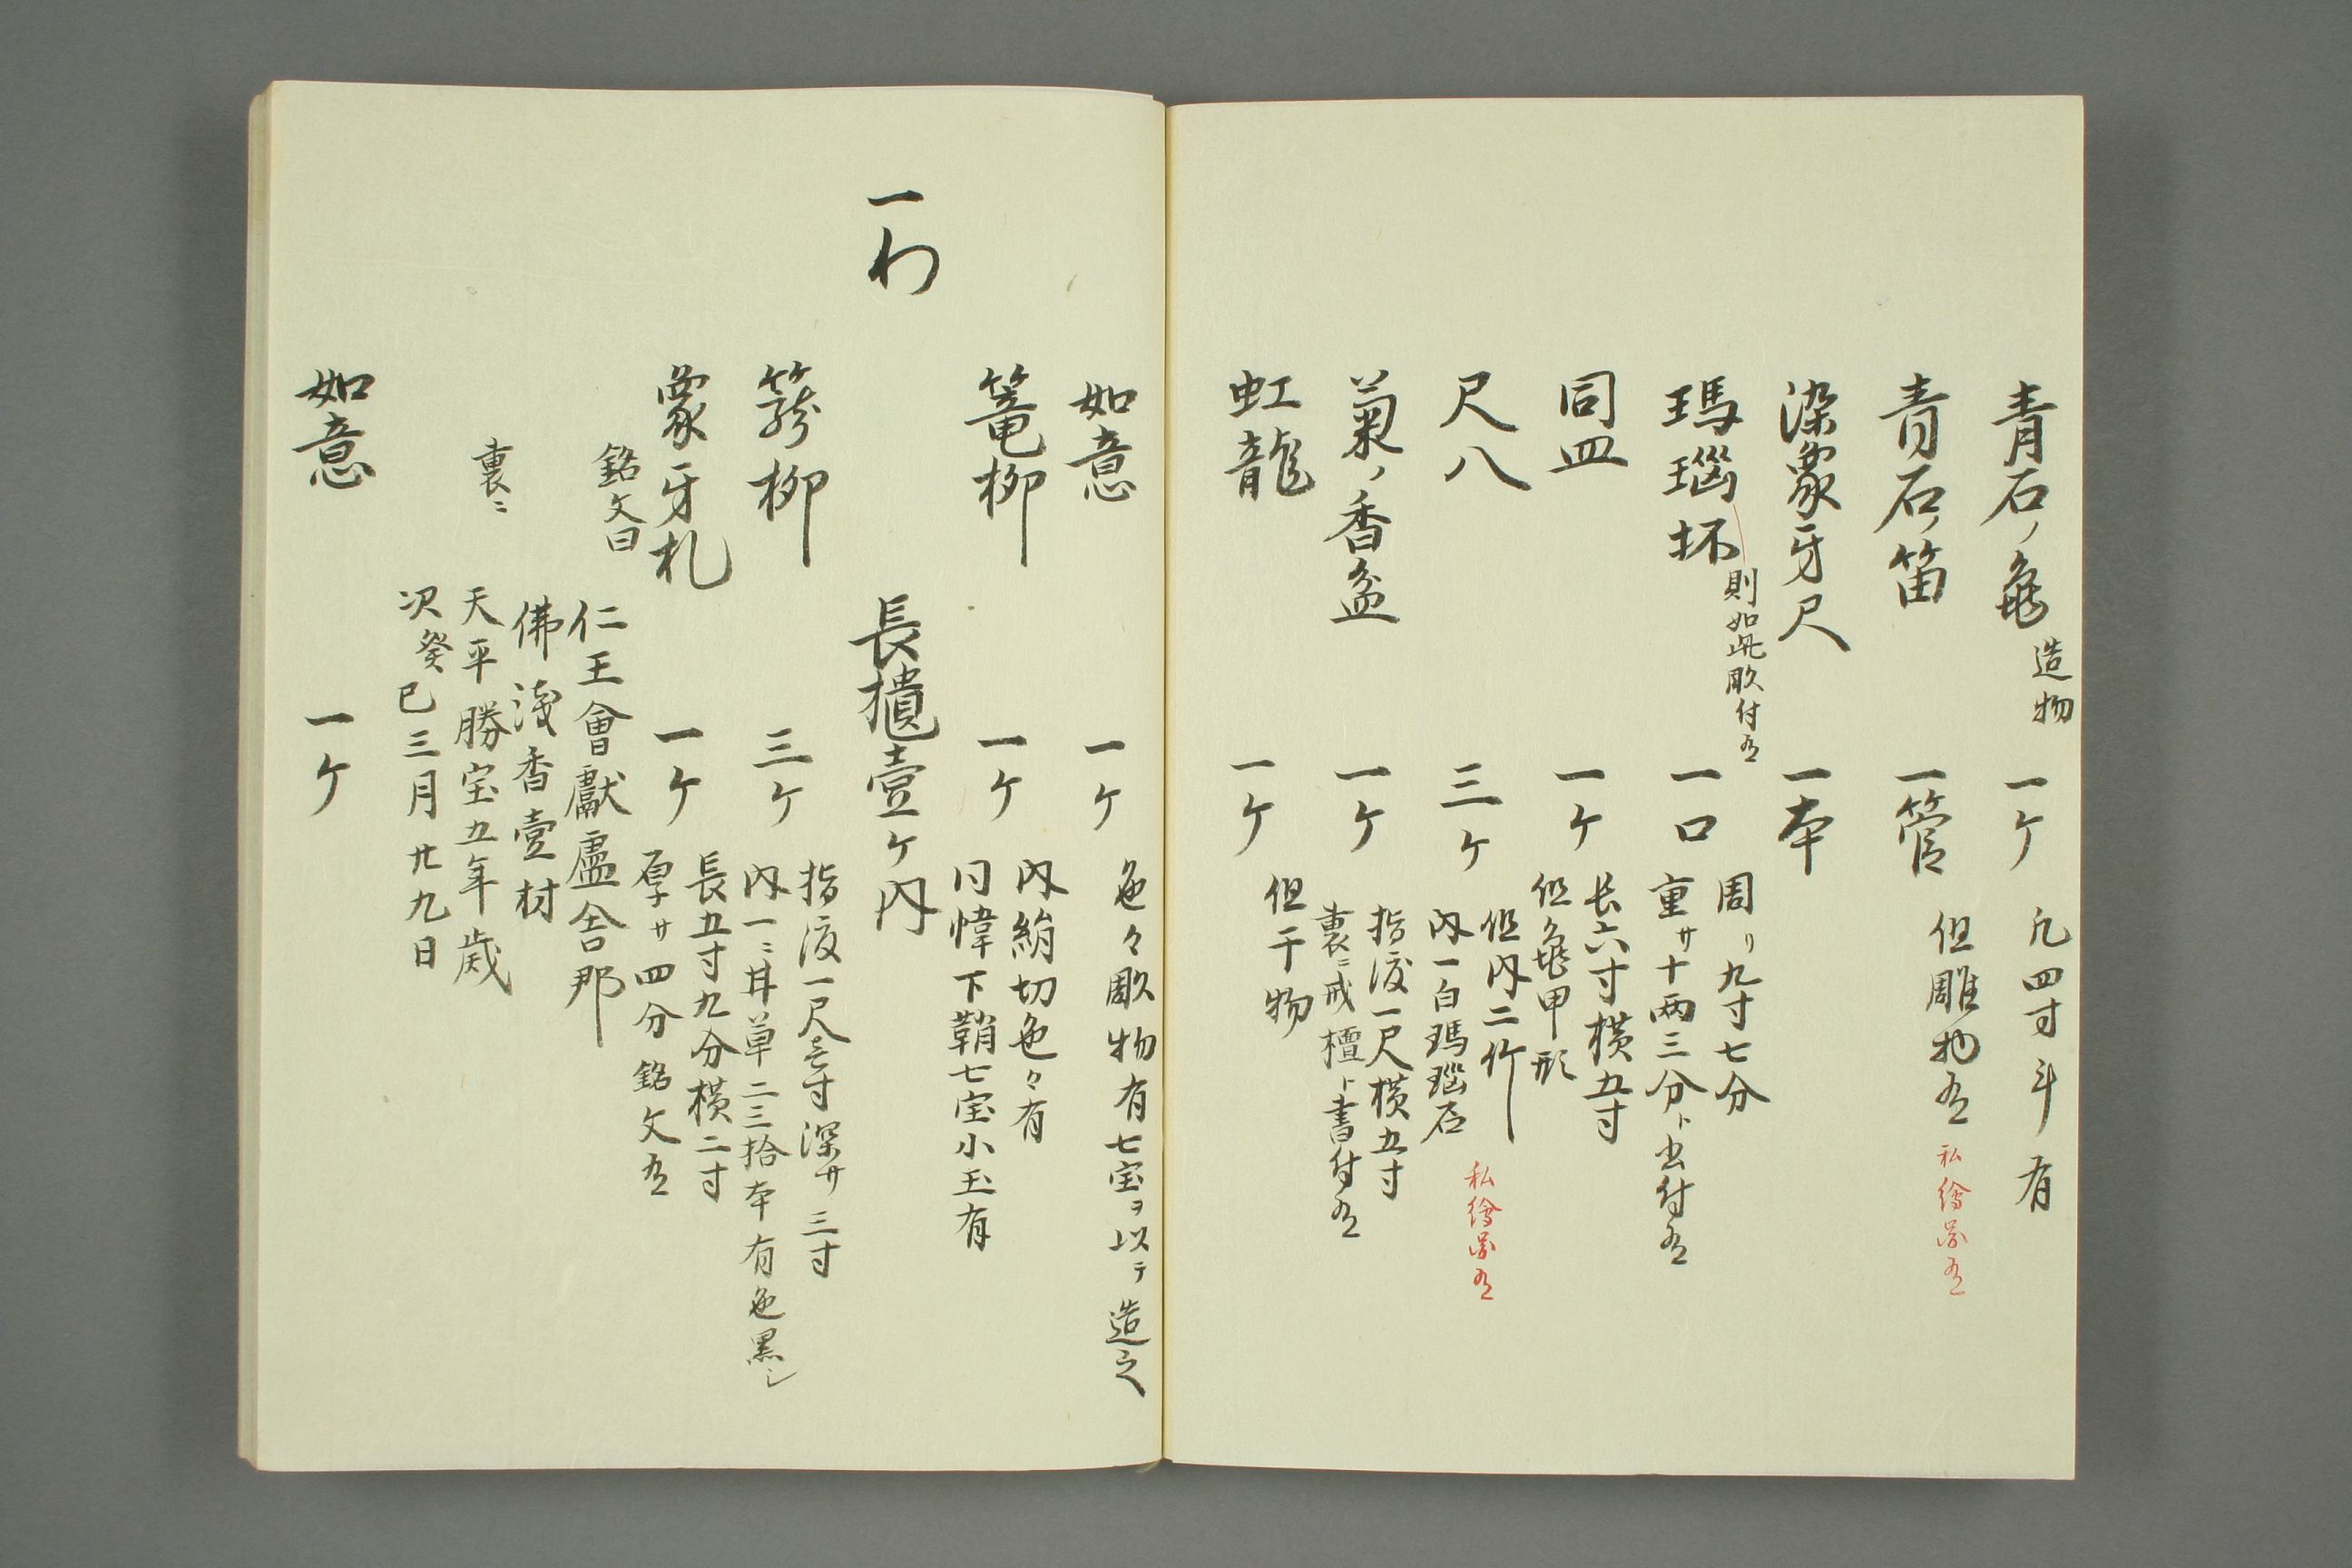 青石ノ亀 造物 一ケ 凡四寸斗有
青石ノ笛 一管 但雕物有 私繪図有
染象牙尺 一本
瑪瑙坏 則如此彫付有 一口 周リ九寸七分
重サ十两三分ト書付有
同皿 一ケ 长六寸横五寸
但亀甲形
尺八 三ケ 但内二竹
内一白瑪瑙石 私繪図有
菊ノ香盆 一ケ 指渡一尺横五寸
裏ニ戒檀ト書付有
虹龍 一ケ 但干物
如意 一ケ 色々彫物有七宝ヲ以テ造之
篭柳 一ケ 内絹切色々有
同幃下鞘七宝小玉有
一わ 長櫃壹ケ内
篭柳 三ケ 指渡一尺壱寸深サ三寸
内一ニ丼草二三拾本有色黒シ
象牙札 一ケ 長五寸九分横二寸
厚サ四分銘文有
銘文曰 仁王會獻盧舎那
佛淺香壹材
裏ニ 天平勝宝五年歳
次癸巳三月廿九日
如意 一ケ